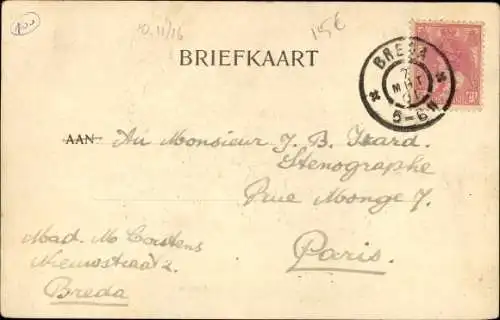 100
10,11/16
15€
BRIEFKAART
BREDA
7
MRT
5-6N
AAN
Au Monsieur J. B. Izard.
Stenographe
Rue Monge 7.
Paris.
Mad. M Corstens
Nieuwstraat 2.
Breda